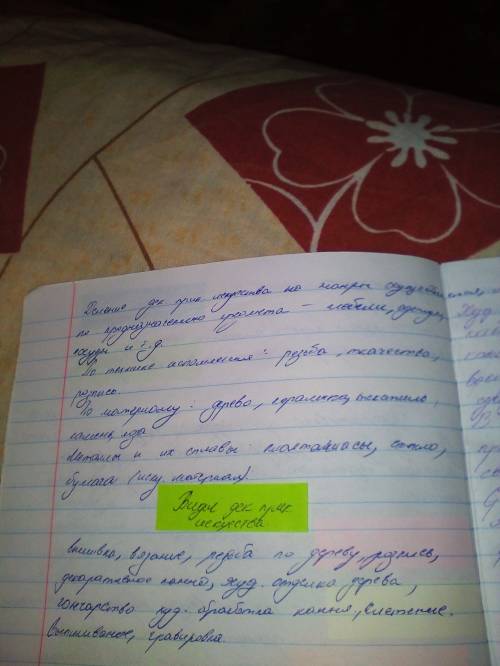 Деление дек. прик. искусства на жанры осуществляется
по предназначению предмета – мебели, одежды,
посуды и т.д.
По технике исполнения: резьба, ткачество,
роспись.
По материалу: дерево, керамика, текстиль,
камень, кожа
Металлы и их сплавы: пластмассы, стекло,
бумага (иск. материал)
Виды дек прик
искусства
вышивка, вязание, резьба по дереву, роспись,
декоративное панно, худ. отделка дерева,
гончарство худ. обработка камня, плетение.
Выжигание, гравировка.